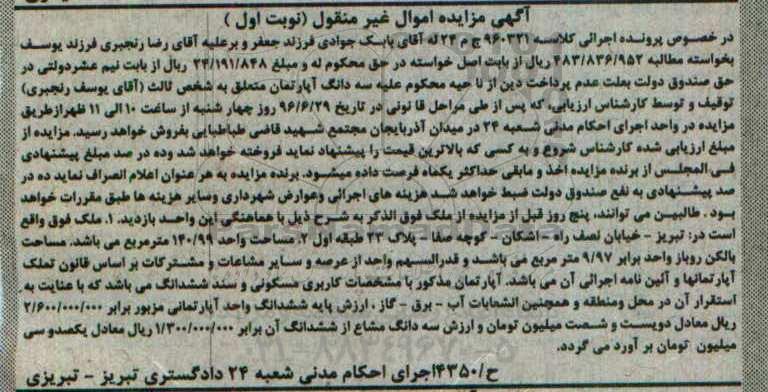 آگهی مزایده اموال غیر منقول (نوبت اول)
در خصوص پرونده اجرائی کلاسه ۹۶۰۳۲۱ ج ۲۴۰ له آقای بابک جوادی فرزند جعفر و برعلیه آقای رضا رنجبری فرزند یوسف
بخواسته مطالبه ۴۸۳/۸۳۶/۹۵۲ ریال از بابت اصل خواسته در حق محکوم له و مبلغ ۲۴/۱۹۱/۸۴۸ ریال از بابت نیم عشردولتی در
حق صندوق دولت بعلت عدم پرداخت دین از نا حیه محکوم علیه سه دانگ آپارتمان متعلق به شخص ثالث (آقای یوسف رنجبری)
توقیف و توسط کارشناس ارزیابی، که پس از طی مراحل قا نونی در تاریخ ۹۶/۶/۲۹ روز چهار شنبه از ساعت ۱۰ الی ۱۱ ظهرازطریق
مزایده در واحد اجرای احکام مدنی شعبه ۲۴ در میدان آذربایجان مجتمع شهید قاضی طباطبایی بفروش خواهد رسید. مزایده از
مبلغ ارزیابی شده کارشناس شروع و به کسی که بالاترین قیمت را پیشنهاد نماید فروخته خواهد شد وده در صد مبلغ پیشنهادی
فی المجلس از برنده مزایده اخذ و مابقی حداکثر یکماه فرصت داده میشود. برنده مزایده به هر عنوان اعلام انصراف نماید ده در
صد پیشنهادی به نفع صندوق دولت ضبط خواهد شد هزینه های اجرائی وعوارض شهرداری وسایر هزینه ها طبق مقررات خواهد
بود . طالبین می توانند، پنج روز قبل از مزایده از ملک فوق الذکر به شرح ذیل با هماهنگی این واحد بازدید. ۱. ملک فوق واقع
است در: تبریز - خیابان لصف راه - اشکان - کوچه صفا - پلاک ۲۳ طبقه اول ۲. مساحت واحد ۱۴۰/۹۹ مترمربع می باشد. مساحت
بالکن روباز واحد برابر ۹/۹۷ متر مربع می باشد و قدرالسهم واحد از عرصه و سایر مشاعات و مشترکات بر اساس قانون تملک
آپارتمانها و آئین نامه اجرائی آن می باشد. آپارتمان مذکور با مشخصات کاربری مسکونی و سند ششدانگ می باشد که با عنایت به
استقرار آن در محل ومنطقه و همچنین انشعابات آب - برق - گاز ، ارزش پایه ششدانگ واحد آپارتمانی مزبور برابر ۲/۶۰۰/۰۰۰/۰۰۰
ریال معادل دویست و شصت میلیون تومان و ارزش سه دانگ مشاع از ششدانگ آن برابر ۱/۳۰۰/۰۰۰/۰۰۰ ریال معادل یکصدو سی
میلیون تومان بر آورد می گردد.
ح/۴۳۵۰اجرای احکام مدنی شعبه ۲۴ دادگستری تبریز - تبریزی